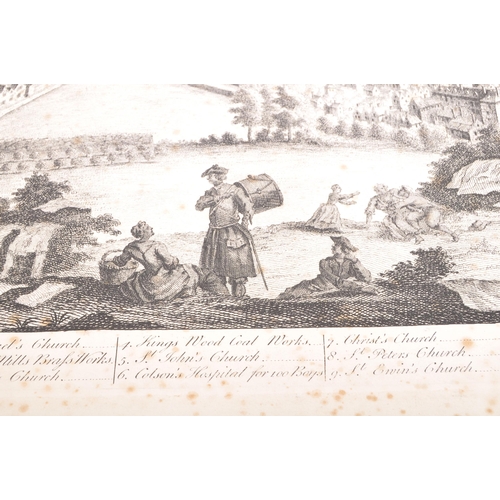 Church. 4. Kings Wood Coal Works. 7. Christ's Church.
Mills Brass Works. 5. St. John's Church. 8. St. Peters Church.
Church. 6. Colson's Hospital for 100 Boys 9. St. Ewin's Church.